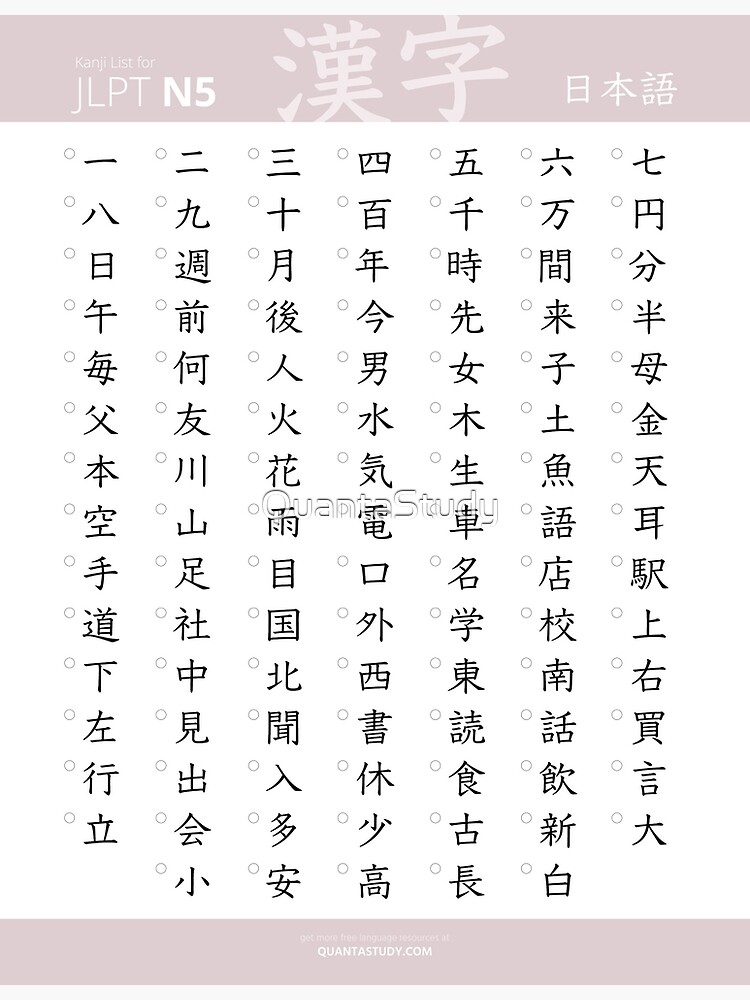 Kanji List for
JLPT N5
漢字
日本語
一 二 三 四 五 六 七
八 九 十 百 千 万 円
日 週 月 年 時 間 分
午 前 後 今 先 来 半
毎 何 人 男 女 子 母
父 友 火 水 木 土 金
本 川 花 気 生 魚 天
QuantaStudy
空 山 雨 電 車 語 耳
手 足 目 口 名 店 駅
道 社 国 外 学 校 上
下 中 北 西 東 南 右
左 見 聞 書 読 話 買
行 出 入 休 食 飲 言
立 会 多 少 古 新 大
小 安 高 長 白
get more free language resources at
QUANTASTUDY.COM